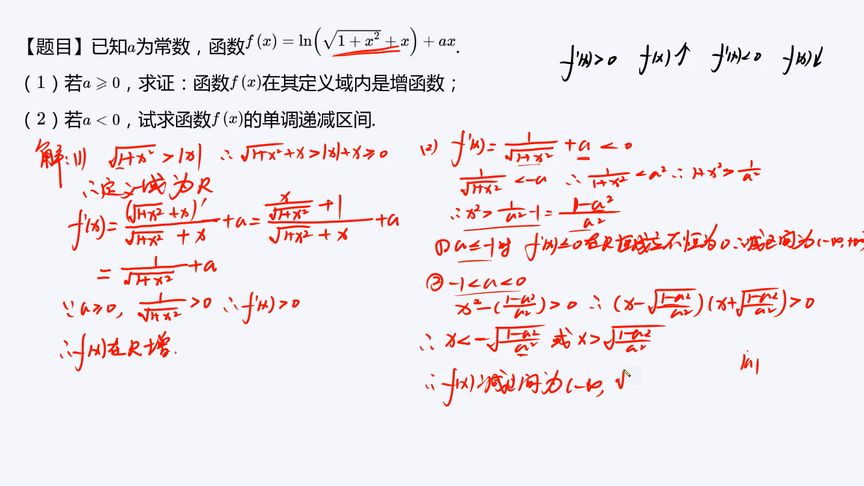 【题目】已知a为常数，函数f(x)=ln(√(1+x²)+x)+ax.
（1）若a⩾0，求证：函数f(x)在其定义域内是增函数；
（2）若a<0，试求函数f(x)的单调递减区间.
f'(x)>0 f(x)↑ f'(x)<0 f(x)↓
解:(1) √(1+x²)>|x| ∴√(1+x²)+x>|x|+x≥0
∴定义域为R
f'(x)=(√(1+x²)+x)'/(√(1+x²)+x)+a=(x/√(1+x²)+1)/(√(1+x²)+x)+a
=1/√(1+x²)+a
∵a≥0, 1/√(1+x²)>0 ∴f'(x)>0
∴f(x)在R增.
(2) f'(x)=1/√(1+x²)+a<0
1/√(1+x²)<-a ∴1/(1+x²)<a² ∴1+x²>1/a²
∴x²>1/a²-1=(1-a²)/a²
①a≤-1时 f'(x)≤0在R恒成立不恒为0∴减区间为(-∞,+∞)
②-1<a<0
x²-((1-a²)/a²)>0 ∴(x-√((1-a²)/a²))(x+√((1-a²)/a²))>0
∴x<-√((1-a²)/a²) 或x>√((1-a²)/a²)
∴f(x)减区间为(-∞, √